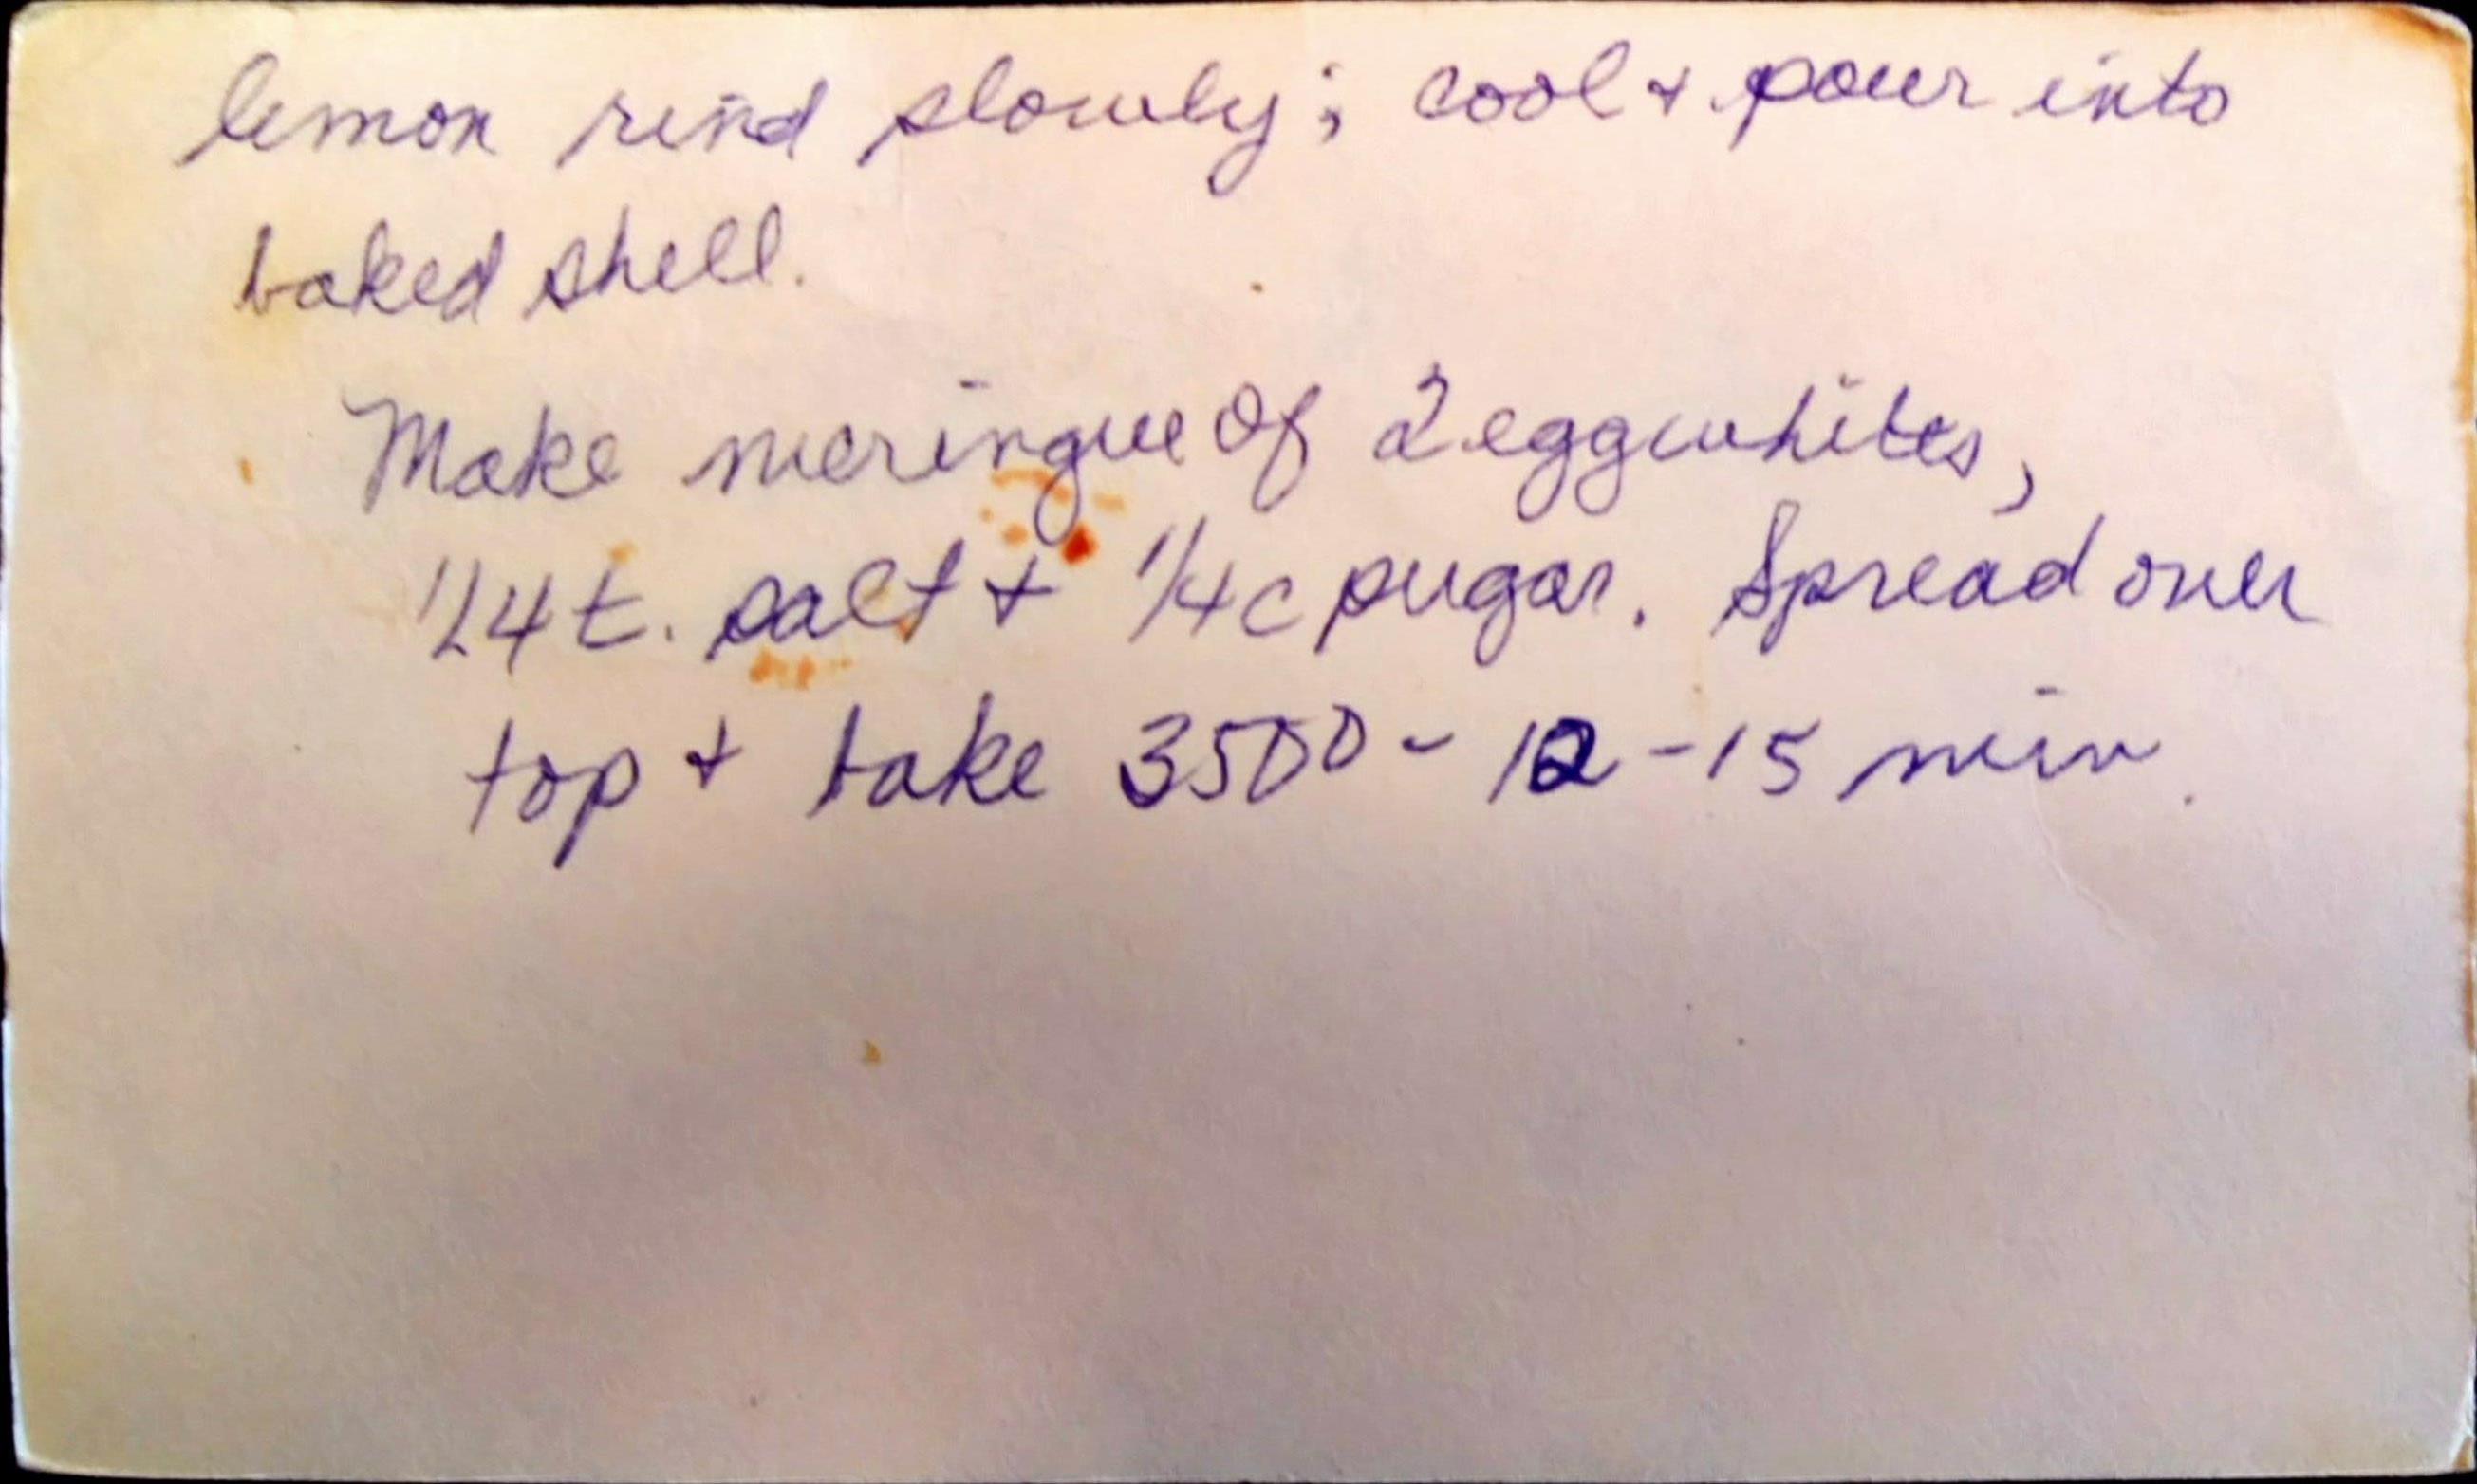 lemon rind slowly; cool + pour into
baked shell.
Make meringue of 2 eggwhites,
1/4 t. salt + 1/4 c sugar. Spread over
top + bake 350° - 12 - 15 min.